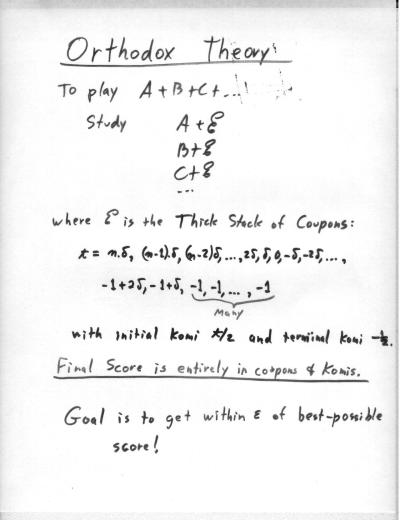 Orthodox Theory
To play A+B+C+...
Study A+ℰ
B+ℰ
C+ℰ
...
where ℰ is the Thick Stack of Coupons:
t = n.δ, (n-1).δ, (n-2)δ, ..., 2δ, δ, 0, -δ, -2δ, ...,
-1+2δ, -1+δ, -1, -1, ..., -1
Many
with initial Komi t/2 and terminal Komi -½.
Final Score is entirely in coupons & Komis.
Goal is to get within ε of best-possible
score!